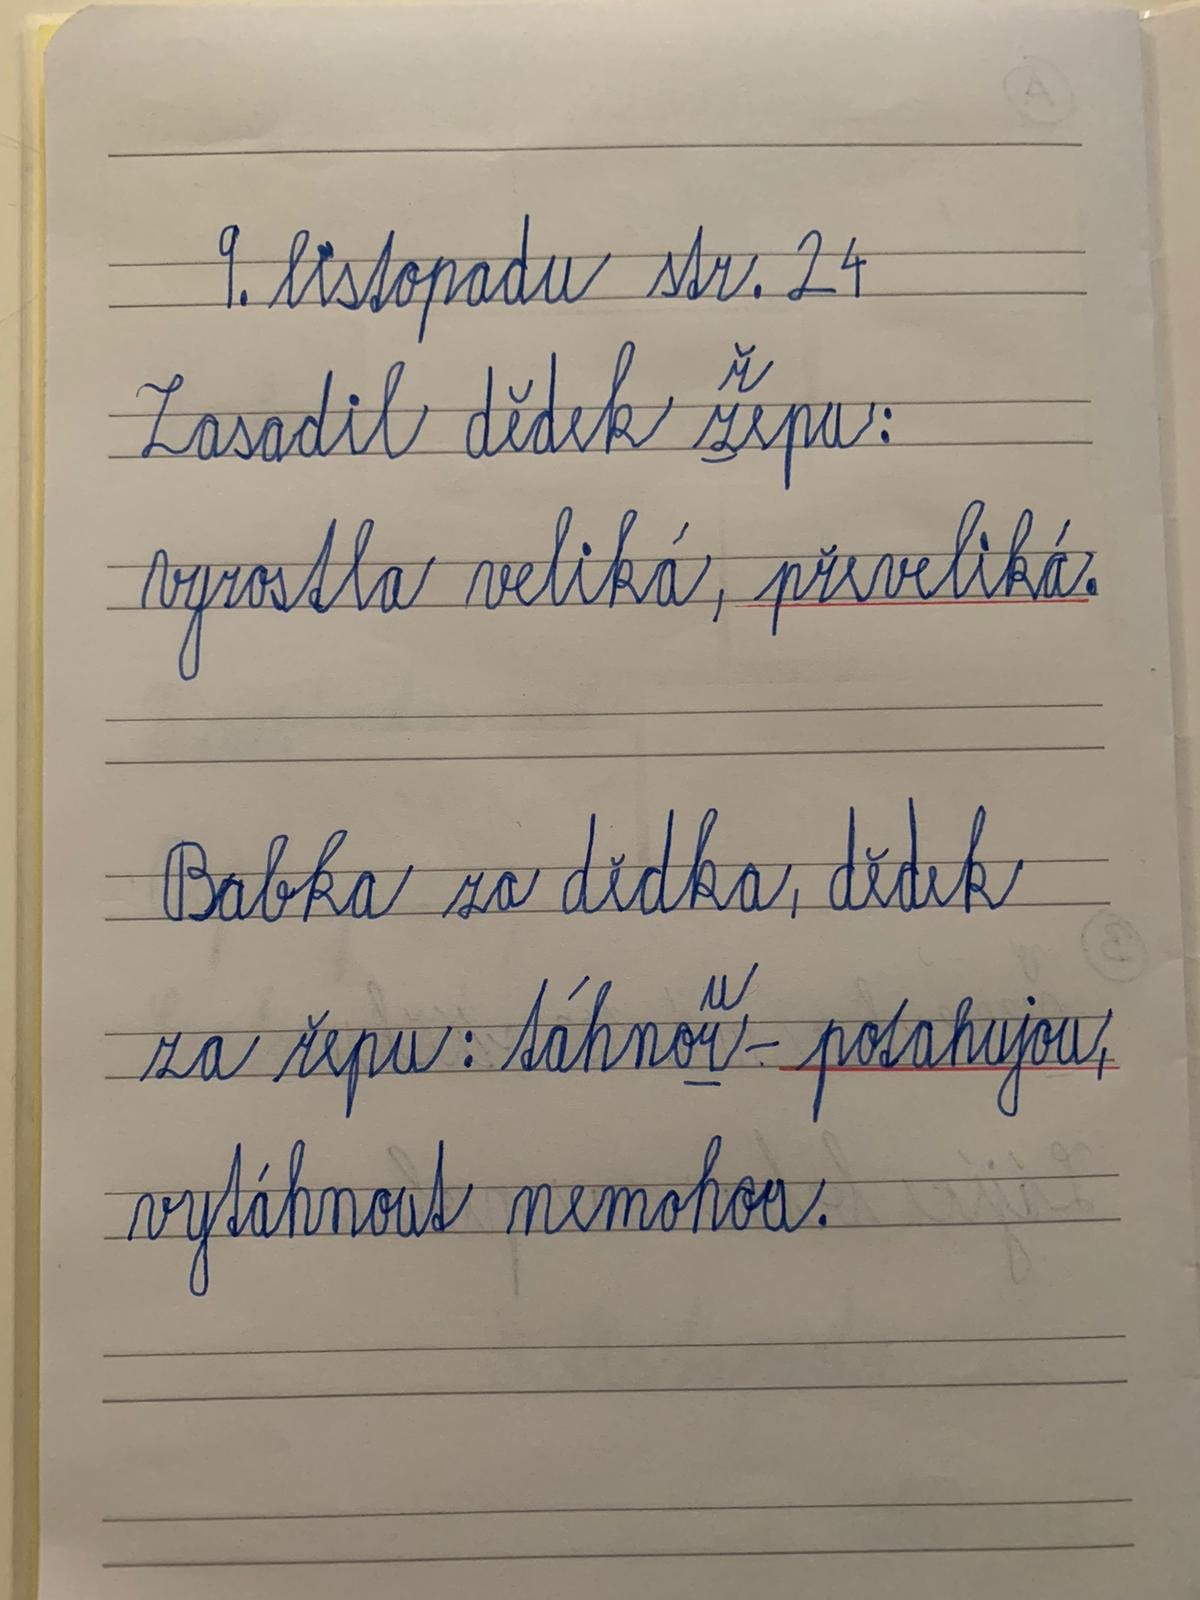 9. listopadu str. 24
Zasadil dědek řepu:
vyrostla veliká, převeliká.
Babka za dědka, dědek
za řepu: táhnou – potahujou,
vytáhnout nemohou.